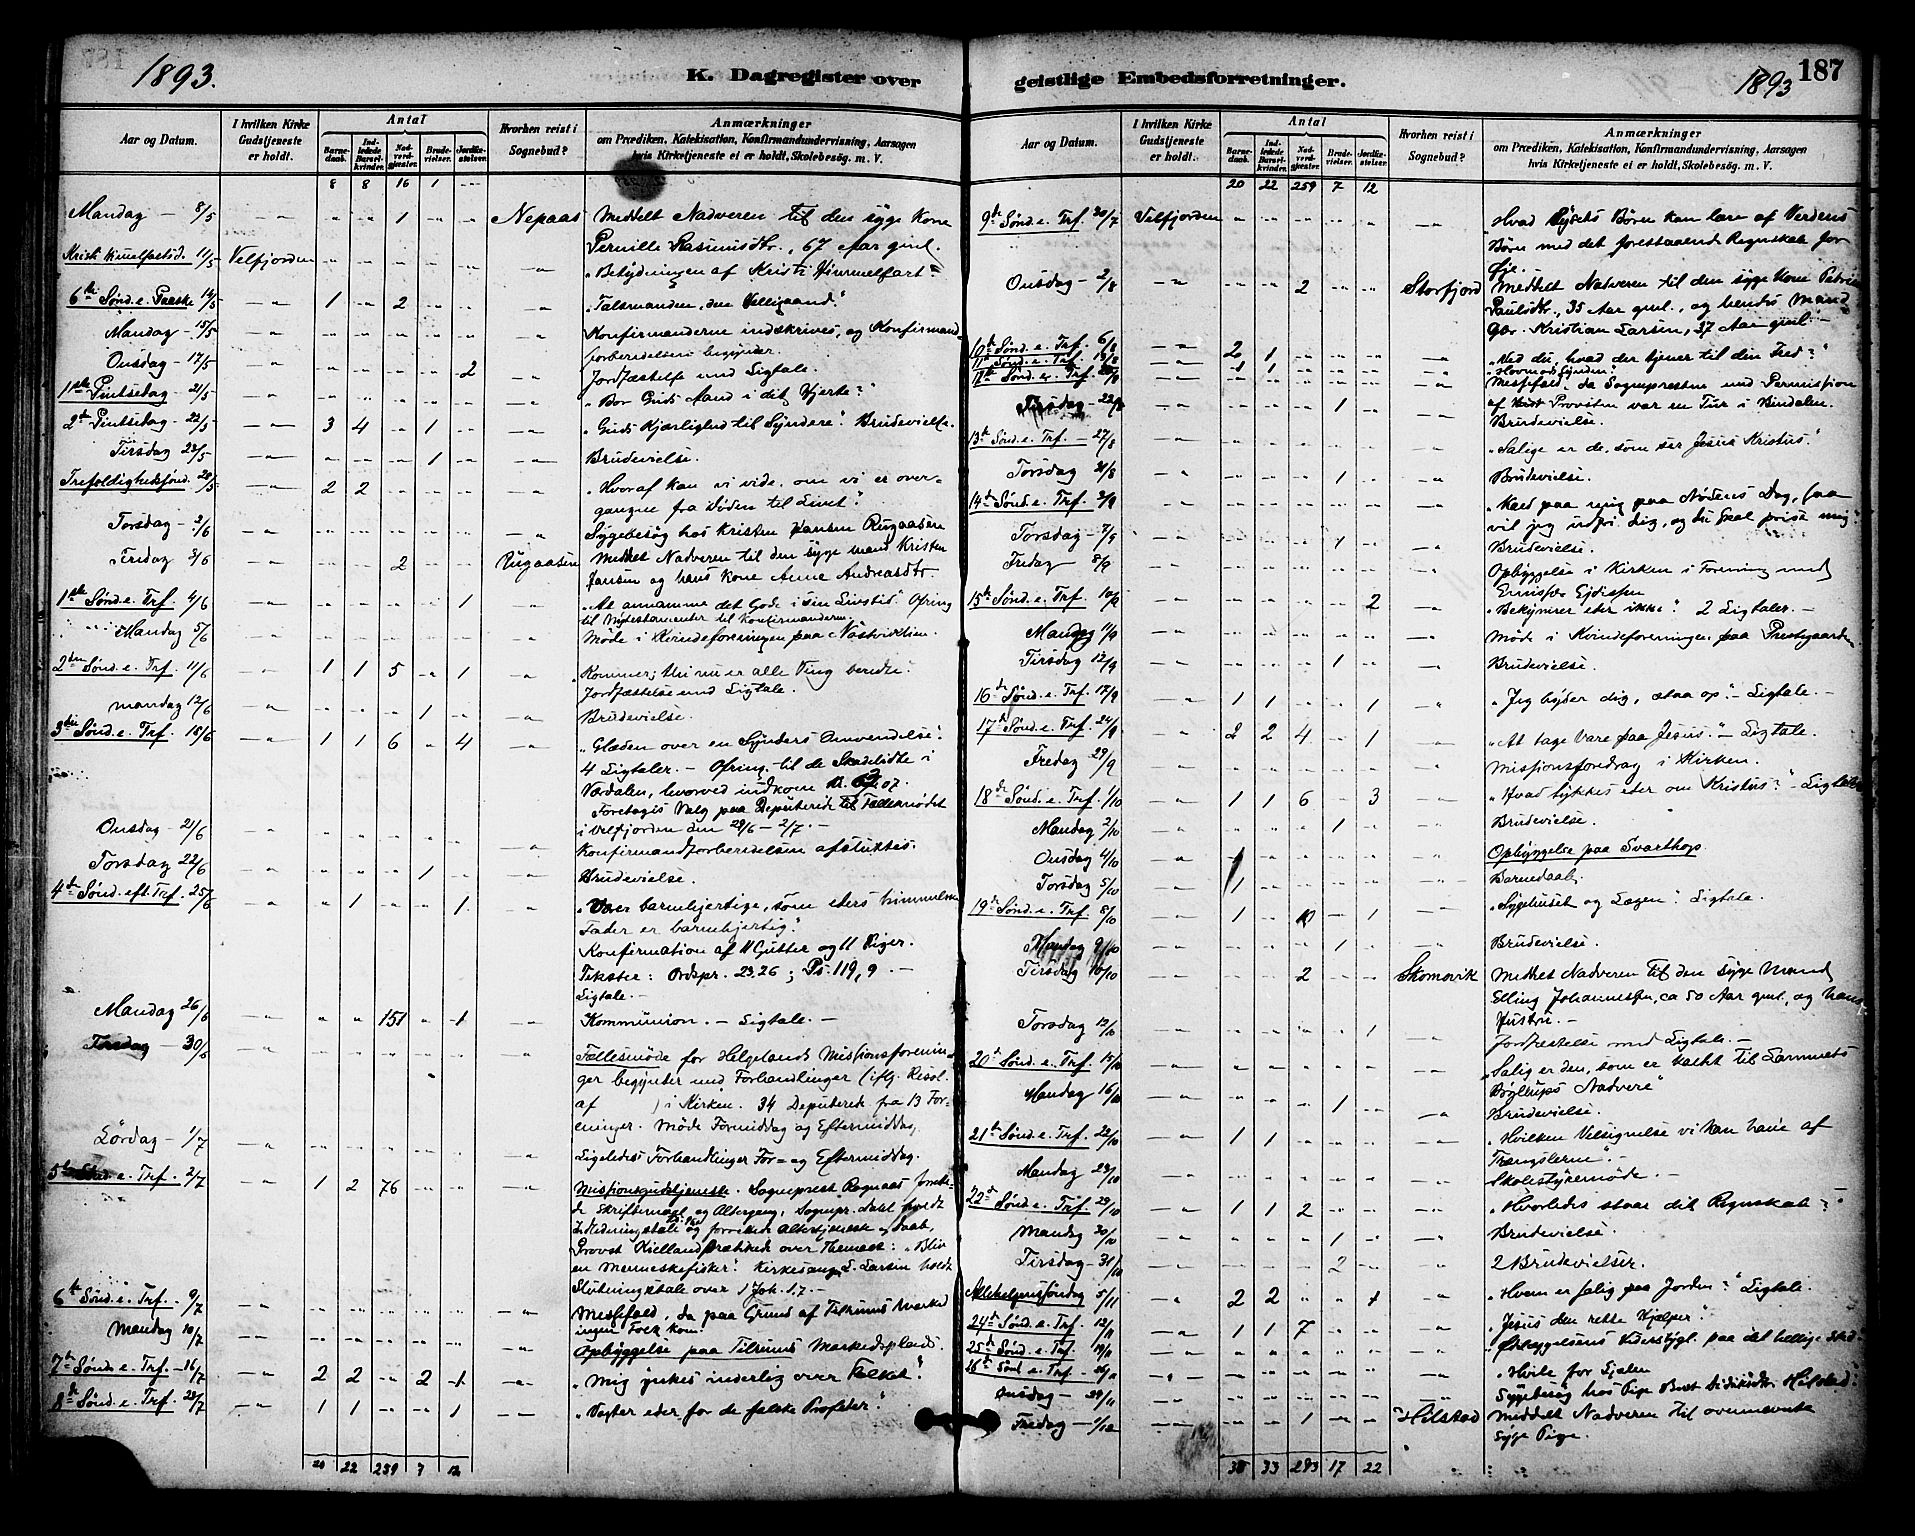 1893.
K. Dagregister over
Aar og Datum.
I hvilken Kirke Gudstjeneste er holdt.
Antal
Barnedaab.
Indledede Barselkvinder.
Nadverdgjester.
Brudevielser.
Jordfæstelser.
Hvorhen reist i Sognebud?
Anmærkninger
om Prædiken, Katekisation, Konfirmandundervisning, Aarsagen
hvis Kirketjeneste ei er holdt, Skolebesøg. m. V.
8 8 16 1 "
Mandag — 8/5 — " — " " 1 " " Nepaas Meddelt Nadveren til den syge Kone
Pernille Rasmusdtr., 67 Aar gml.
Kristi Himmelfartsd. 11/5 Velfjorden " " " " " — " „Betydningen af Kristi Himmelfart“
6te Sønd. e. Paaske 14/5 — " — 1 " 2 " " — " „Talsmanden, den Helligaand.“
Mandag — 15/5 — " — " " " " " — " Konfirmanderne indskrives, og Konfirmand
forberedelsen begynder.
Onsdag — 17/5 — " — " " " " 2 — " Jordfæstelse med Ligtale.
1ste Pintsedag — 21/5 — " — " " " " " — " „Bor Guds Aand i dit Hjerte?“
2den Pintsedag — 22/5 — " — 3 4 " 1 " — " „Guds Kjærlighed til Syndere“. Brudevielse.
Tirsdag — 23/5 — " — " " " 1 " — " — Brudevielse.
Trefoldighedssønd. 28/5 — " — 2 2 " " " — " „Hvoraf kan vi vide, om vi er over-
gangne fra Døden til Livet?“
Torsdag — 2/6 — " — " " " " " — " Sygebesøg hos Kristen Jansen Rugaasen
Fredag 3/6 — " — " " 2 " " Rugaasen Meddelt Nadveren til den syge Mand Kristen
Jansen og hans Kone Anne Andreasdtr.
1ste Sønd. e. Trf. 4/6 — " — " " " " 1 — " „At annamme det Gode i sin Livstid“ Ofring
til Nytestamenter til Konfirmanderne.
Mandag 5/6 — " — " " " " " — " Møde i Kvindeforeningen paa
2den Sønd. e. Trf. 11/6 — " 1 1 5 " 1 — " „Kommer; thi nu er alle Ting beredte“
Jordfæstelse med Ligtale.
Mandag 12/6 — " " " " 1 " — " Brudevielse.
3die Sønd. e. Trf. 18/6 — " — 1 1 6 " 4 — " „Glæden over en Synders Omvendelse“.
4 Ligtaler. — Ofring til de Skadelidte i
Værdalen, hvorved indkom
Foretages Valg paa Deputerede til Fællesmødet
i Velfjorden den 29/6 – 2/7. —
Onsdag — 21/6 — " " " " " " — " Konfirmandforberedelsen afsluttes.
Torsdag 22/6 — " " " " 1 " — " Brudevielse.
4de Sønd. eft. Trf. 25/6 — " " 1 " " 1 — " „Vær barmhjertige, som eders himmelske
Fader er barmhjertig“.
Konfirmation af 11 Gutter og 11 Piger.
Tekster: Ordspr. 23.26; Ps. 119, 9. —
Ligtale. —
Mandag 26/6 — " " " 151 " 1 — " Kommunion. — Ligtale. —
30/6 — " " " " " " — " Fællesmøde for Helgelands Missionsforenin-
ger begynder med Forhandlinger (iflg. Resol.
af ) i Kirken. 34 Deputerede fra 13 For-
eninger. Møde Formiddag og Eftermiddag
Lørdag — 1/7 — " " " " " " — " Ligeledes Forhandlinger For= og Eftermiddag.
5te Sønd. e. Trf. 2/7 — " 1 2 76 " " — " Missionsgudstjeneste. Sogneprest
de Skriftemaal og Altergang, Sognepr.
Indledningstale og forrettede Altertjeneste og Daab,
Provst Kielland prædikede over Themaet: „Bliv
en Menneskefisker“. Kirkesanger L. Larsen holdt
Slutningstale over 1 Joh. 1.7. —
6te Sønd. e. Trf. 9/7 — " " " " " " — " Messefald, da paa Grund af Tilrums Marked
ingen Folk kom.
Mandag 10/7 — " " " " " " — " Opbyggelse paa Tilrums Markedsplads.
7de Sønd. e. Trf. — 16/7 — " — 2 2 " 2 1 — " „Mig ynkes inderlig over Folket“.
8de Sønd. e. Trf. 23/7 — " 1 1 " " 1 — " „Vogter eder for de falske Profeter“.
20 22 259 7 12
geistlige Embedsforretninger.
1893
187
Aar og Datum.
I hvilken Kirke Gudstjeneste er holdt.
Antal
Barnedaab.
Indledede Barselkvinder.
Nadverdgjester.
Brudevielser.
Jordfæstelser.
Hvorhen reist i Sognebud?
Anmærkninger
om Prædiken, Katekisation, Konfirmandundervisning, Aarsagen
hvis Kirketjeneste ei er holdt, Skolebesøg. m. V.
20 22 259 7 12
9de Sønd. e. Trf. 30/7 Velfjorden " " " " " — " Hvad Lysets Børn kan lære af Verdens
Børn med det forestaaende Regnskab for
Øje.
Onsdag — 2/8 — " — " " 2 " " Storfjord Meddelt Nadveren til den syge Kone Petrine
Paulsdtr., 35 Aar gml., og hendes Mand
Kristian Larsen, 37 Aar gml. —
10de Sønd. e. Trf. 6/8 — " — 2 1 " " " — " „Ved du, hvad der tjener til din Fred?“
11te Sønd. e. Trf. 13/8 — " — " " " " " — " „Hovmodssynden“.
12te Sønd. e. Trf. 20/8 — " — 1 1 " " " — " Messefald. da Sognepresten med Permission
af Provsten var en Tur i Bindalen.
Tirsdag 22/8 — " " " " 1 " — " Brudevielse.
13de Sønd. e. Trf. — 27/8 — " — " " " " " — " „Salige er de, som ser Jesus Kristus.“
Torsdag 31/8 — " " " " 1 " — " Brudevielse.
14de Sønd. e. Trf. 3/9 — " " " " " " — " „Kald paa mig paa Nødens Dag, saa
vil jeg udfri dig, og du skal prise mig“.
Torsdag — 7/9 — " " " " 1 " — " Brudevielse.
Fredag 8/9 — " " " " " " — " Opbyggelse i Kirken i Forening med
Emissær
15de Sønd. e. Trf. 10/9 — " " " " " 2 — " „Bekymrer eder ikke“! 2 Ligtaler. —
Mandag 11/9 — " " " " " " — " Møde i Kvindeforeningen paa Prestegaarden
Tirsdag 12/9 — " " " " 1 " — " Brudevielse.
16de Sønd. e. Trf. 17/9 — " 1 1 " " 1 — " „Jeg byder dig, staa op“. — Ligtale. —
17de Sønd. e. Trf. 24/9 — " — 2 2 4 " 1 — " „At tage Vare paa Jesus“. — Ligtale.
Fredag 29/9 — " " " " " " — " Missionsforedrag i Kirken.
18de Sønd. e. Trf. 1/10 — " 1 1 6 " 3 — " „Hvad tykkes eder om Kristus?“ — Ligtale
Mandag 2/10 — " " " " 1 " " Brudevielse.
Onsdag 4/10 — " " " " " " Opbyggelse paa Svarthop.
Torsdag 5/10 — " 1 " " " " — " Barnedaab.
19de Sønd. e. Trf. 8/10 — " 1 " 10 " 1 — " „Sygehuset og Lægen“. Ligtale.
Mandag 9/10 — " " " " 1 " — " Brudevielse.
Tirsdag 10/10 — " " " 2 " " Skomovik Meddelt Nadveren til den syge Mand
Elling Johannessen, ca 50 Aar gml., og hans
Hustru. —
Torsdag 12/10 — " " " " " 1 — " Jordfæstelse med Ligtale. —
20de Sønd. e. Trf. 15/10 — " — " " " " " — " „Salig er den, som er kaldt til Lammets
Bryllups Nadvere“
Mandag 16/10 — " " " " 1 " — " Brudevielse.
21de Sønd. e. Trf. 22/10 — " — 1 1 " " " — " „Hvilken Velsignelse vi kan have af
Trængslerne“. —
Mandag 23/10 — " " " " " " — " Skolestyremøde. —
22de Sønd. e. Trf. 29/10 — " — 1 1 2 " " — " „Hvorledes staar dit Regnskab?“
Mandag 30/10 — " " " " 1 " — " Brudevielse.
Tirsdag — 31/10 — " " " " 2 " — " 2 Brudevielser.
Allehelgenssøndag 5/11 — " 2 2 " " 1 — " „Hvem er salig paa Jorden?“ Ligtale.
24de Sønd. e. Trf. 12/11 — " 1 1 7 " " — " „Jesus den rette Hjælper“.
25de Sønd. e. Trf. 19/11 — " " " " " " — " paa det hellige Sted“
26de Sønd. e. Trf. 26/11 — " " " " " " — " „Hvile for Sjælen
Onsdag — 29/11 — " " " " " " Sygebesøg hos Pige Hilstad.
Fredag — 1/12 — " — " " 1 " " Hilstad Meddelt Nadveren til ovennævnte
syge Pige.
35 33 293 17 22